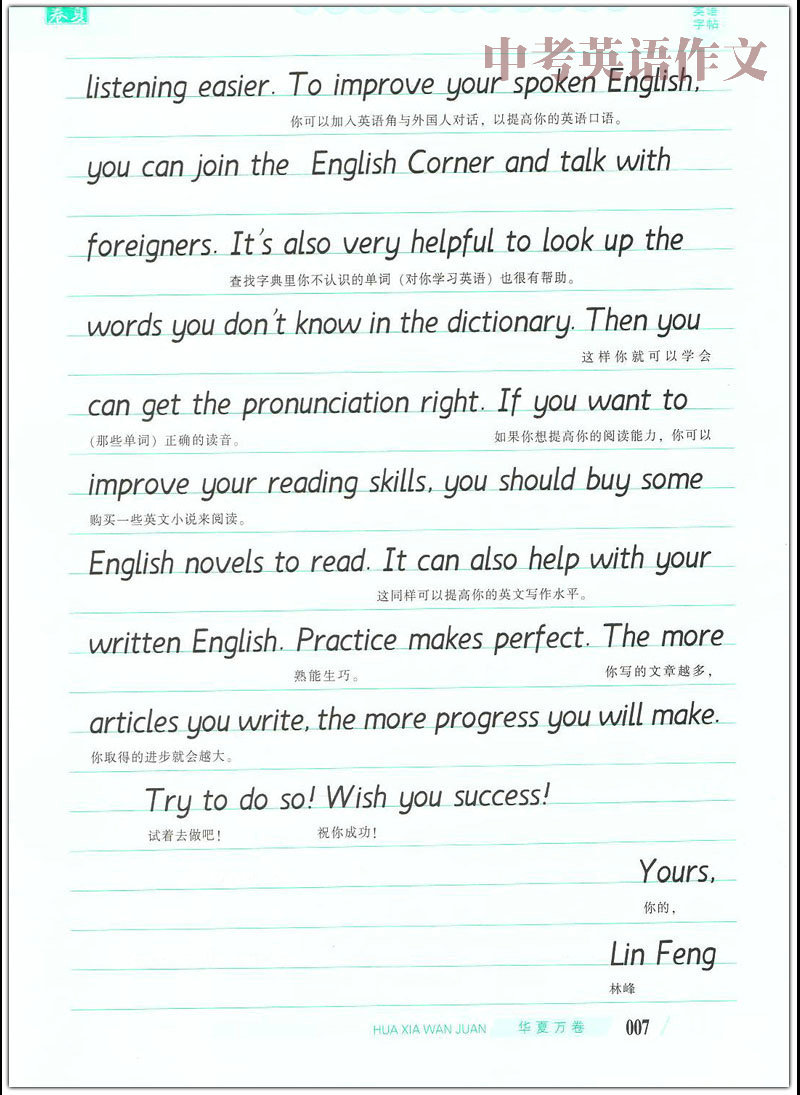 华夏
英语
字帖
中考英语作文
listening easier. To improve your spoken English,
你可以加入英语角与外国人对话，以提高你的英语口语。
you can join the English Corner and talk with
foreigners. It's also very helpful to look up the
查找字典里你不认识的单词（对你学习英语）也很有帮助。
words you don't know in the dictionary. Then you
这样你就可以学会
can get the pronunciation right. If you want to
（那些单词）正确的读音。 如果你想提高你的阅读能力，你可以
improve your reading skills, you should buy some
购买一些英文小说来阅读。
English novels to read. It can also help with your
这同样可以提高你的英文写作水平。
written English. Practice makes perfect. The more
熟能生巧。 你写的文章越多，
articles you write, the more progress you will make.
你取得的进步就会越大。
Try to do so! Wish you success!
试着去做吧！ 祝你成功！
Yours,
你的，
Lin Feng
林峰
HUA XIA WAN JUAN 华夏万卷 007